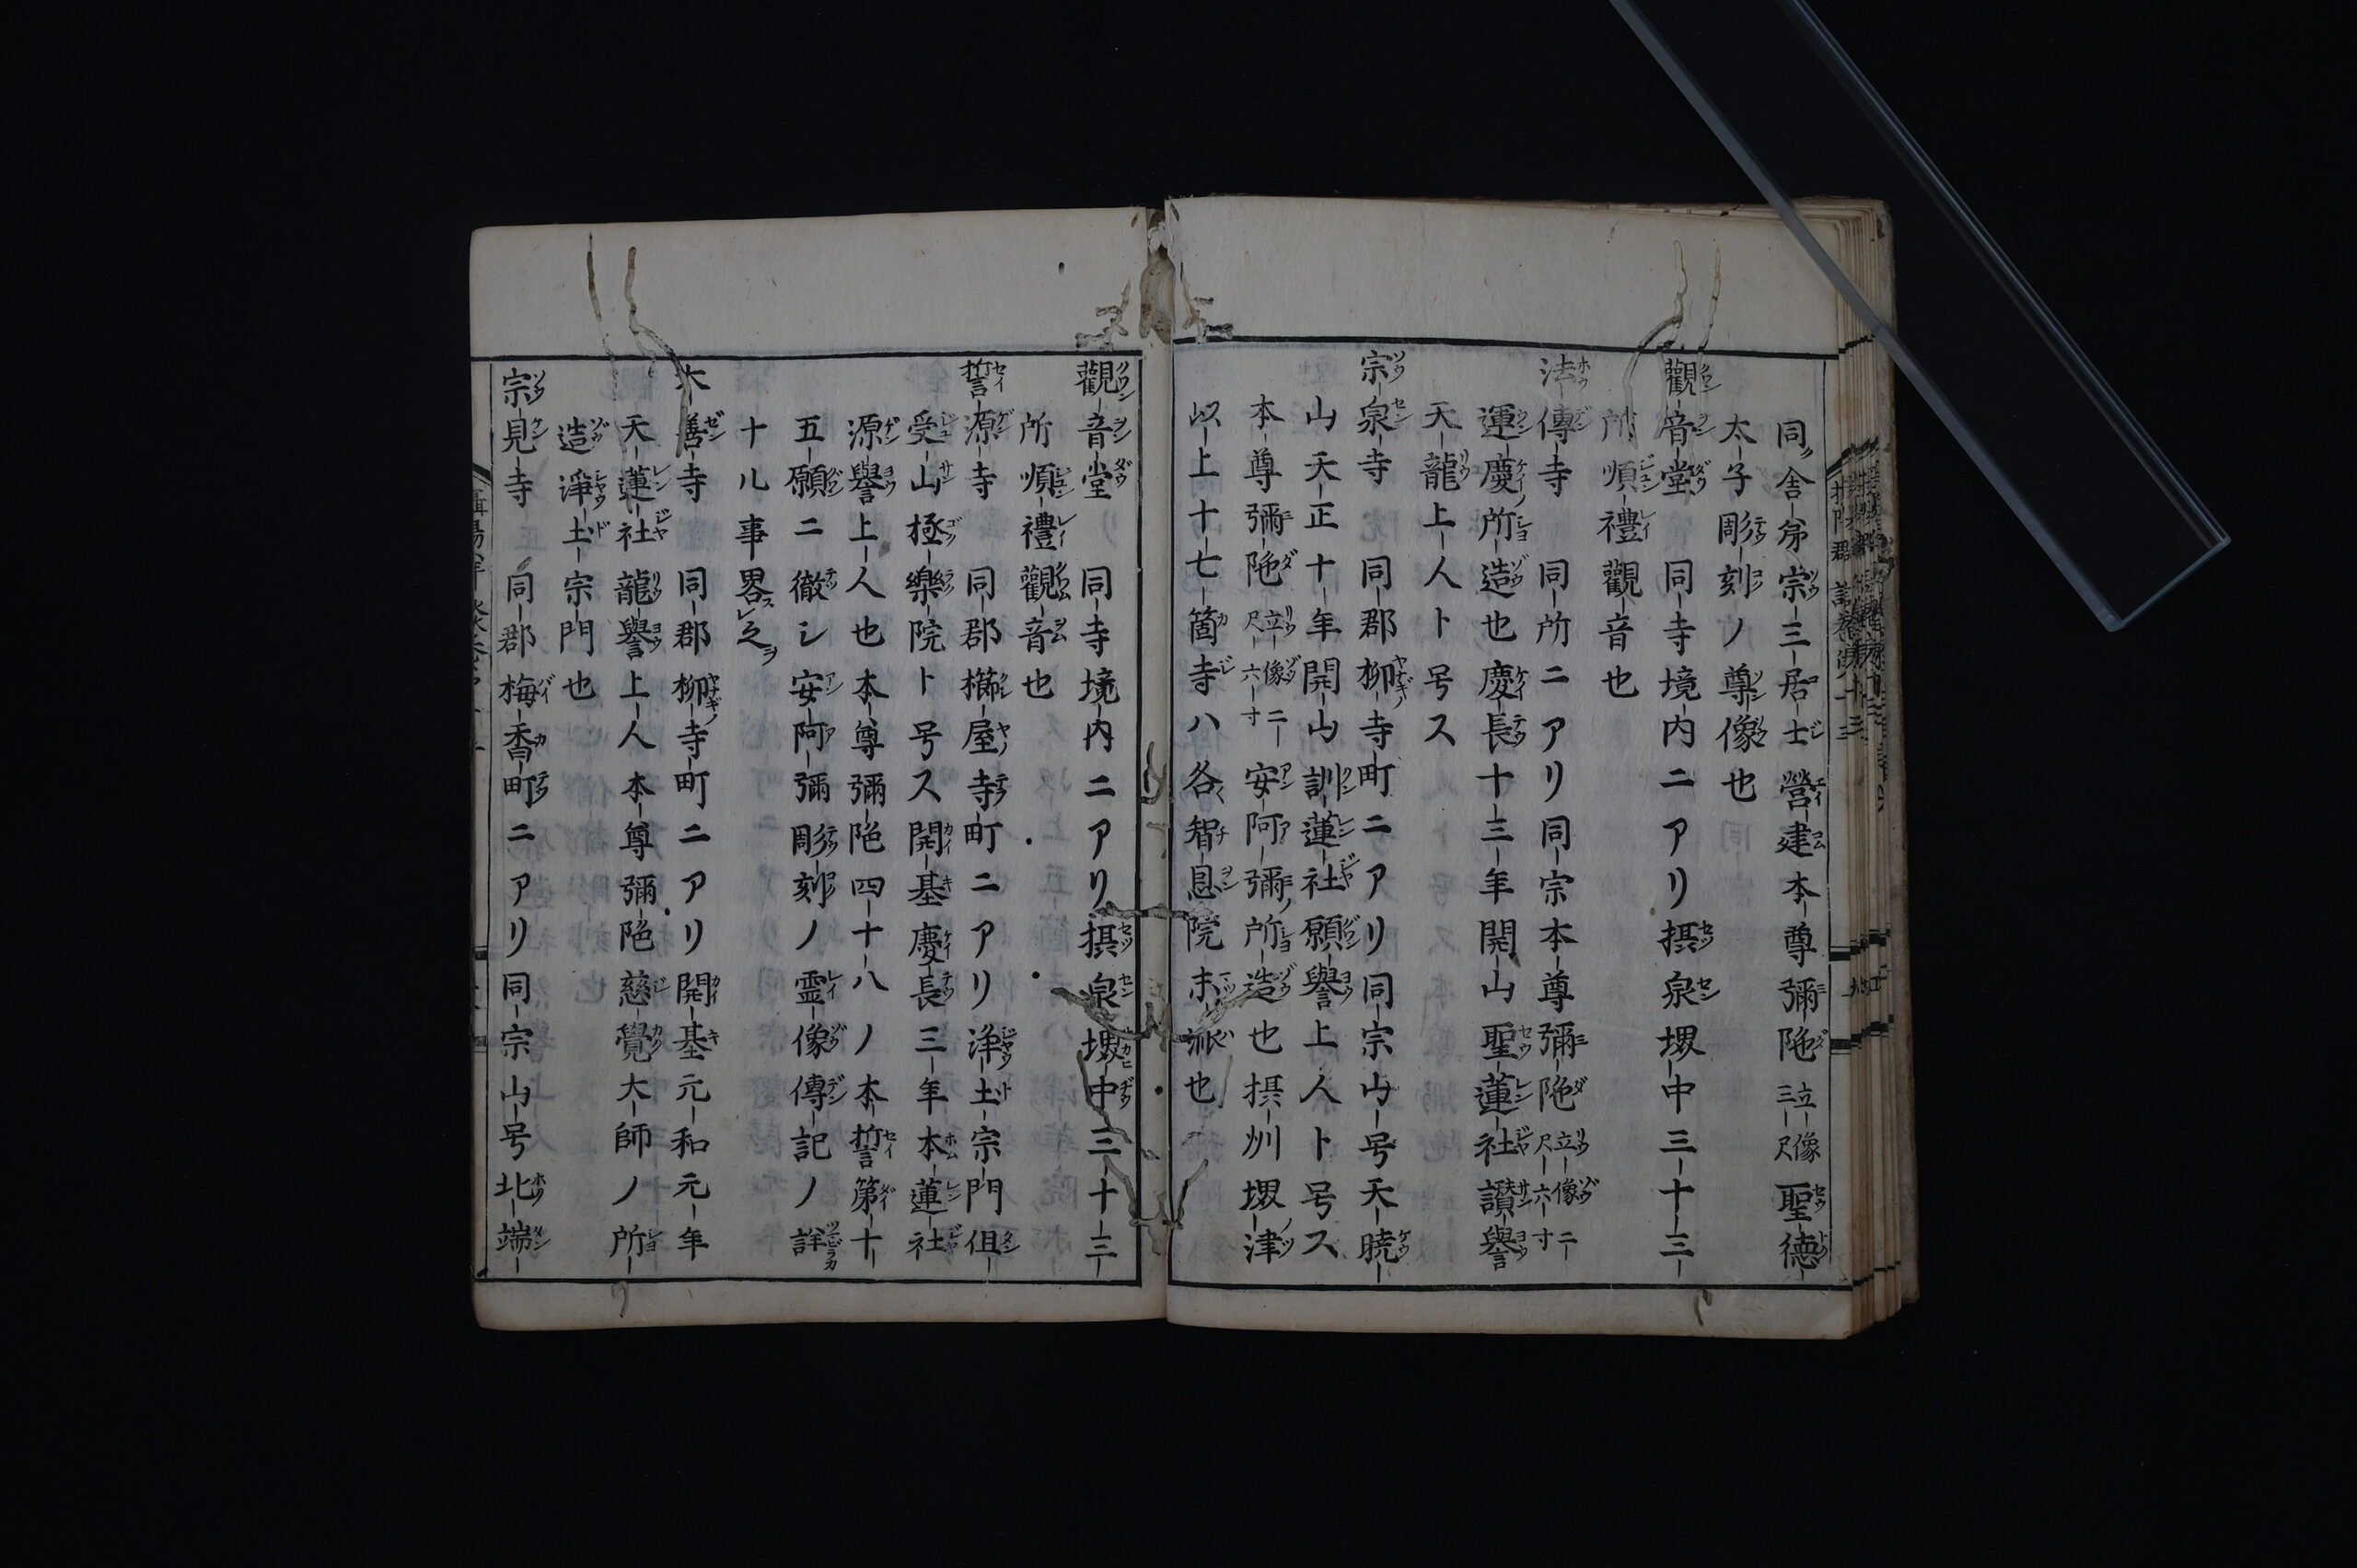 同舎弟宗三居士營建本尊彌陀立像三尺聖德
太子彫刻ノ尊像也
觀音堂 同寺境内ニアリ摂泉堺中三十三
所順禮觀音也
法傳寺 同所ニアリ同宗本尊彌陀立像二尺六寸
運慶所造也慶長十三年開山聖蓮社讃譽
天龍上人ト号ス
宗泉寺 同郡柳寺町ニアリ同宗山号天曉
山天正十年開山訓蓮社願譽上人ト号ス
本尊彌陀立像二尺六寸安阿彌所造也摂州堺津
以上十七箇寺ハ各智恩院末派也
觀音堂 同寺境内ニアリ摂泉堺中三十三
所順禮觀音也
誓源寺 同郡櫛屋寺町ニアリ浄土宗門伹
受山極樂院ト号ス開基慶長三年本蓮社
源譽上人也本尊彌陀四十八ノ本誓第十
五願ニ徹シ安阿彌彫刻ノ霊像傳記ノ詳
十ル事畧之
大善寺 同郡柳寺町ニアリ開基元和元年
天蓮社龍譽上人本尊彌陀慈覺大師ノ所
造淨土宗門也
宗見寺 同郡梅香町ニアリ同宗山号北端